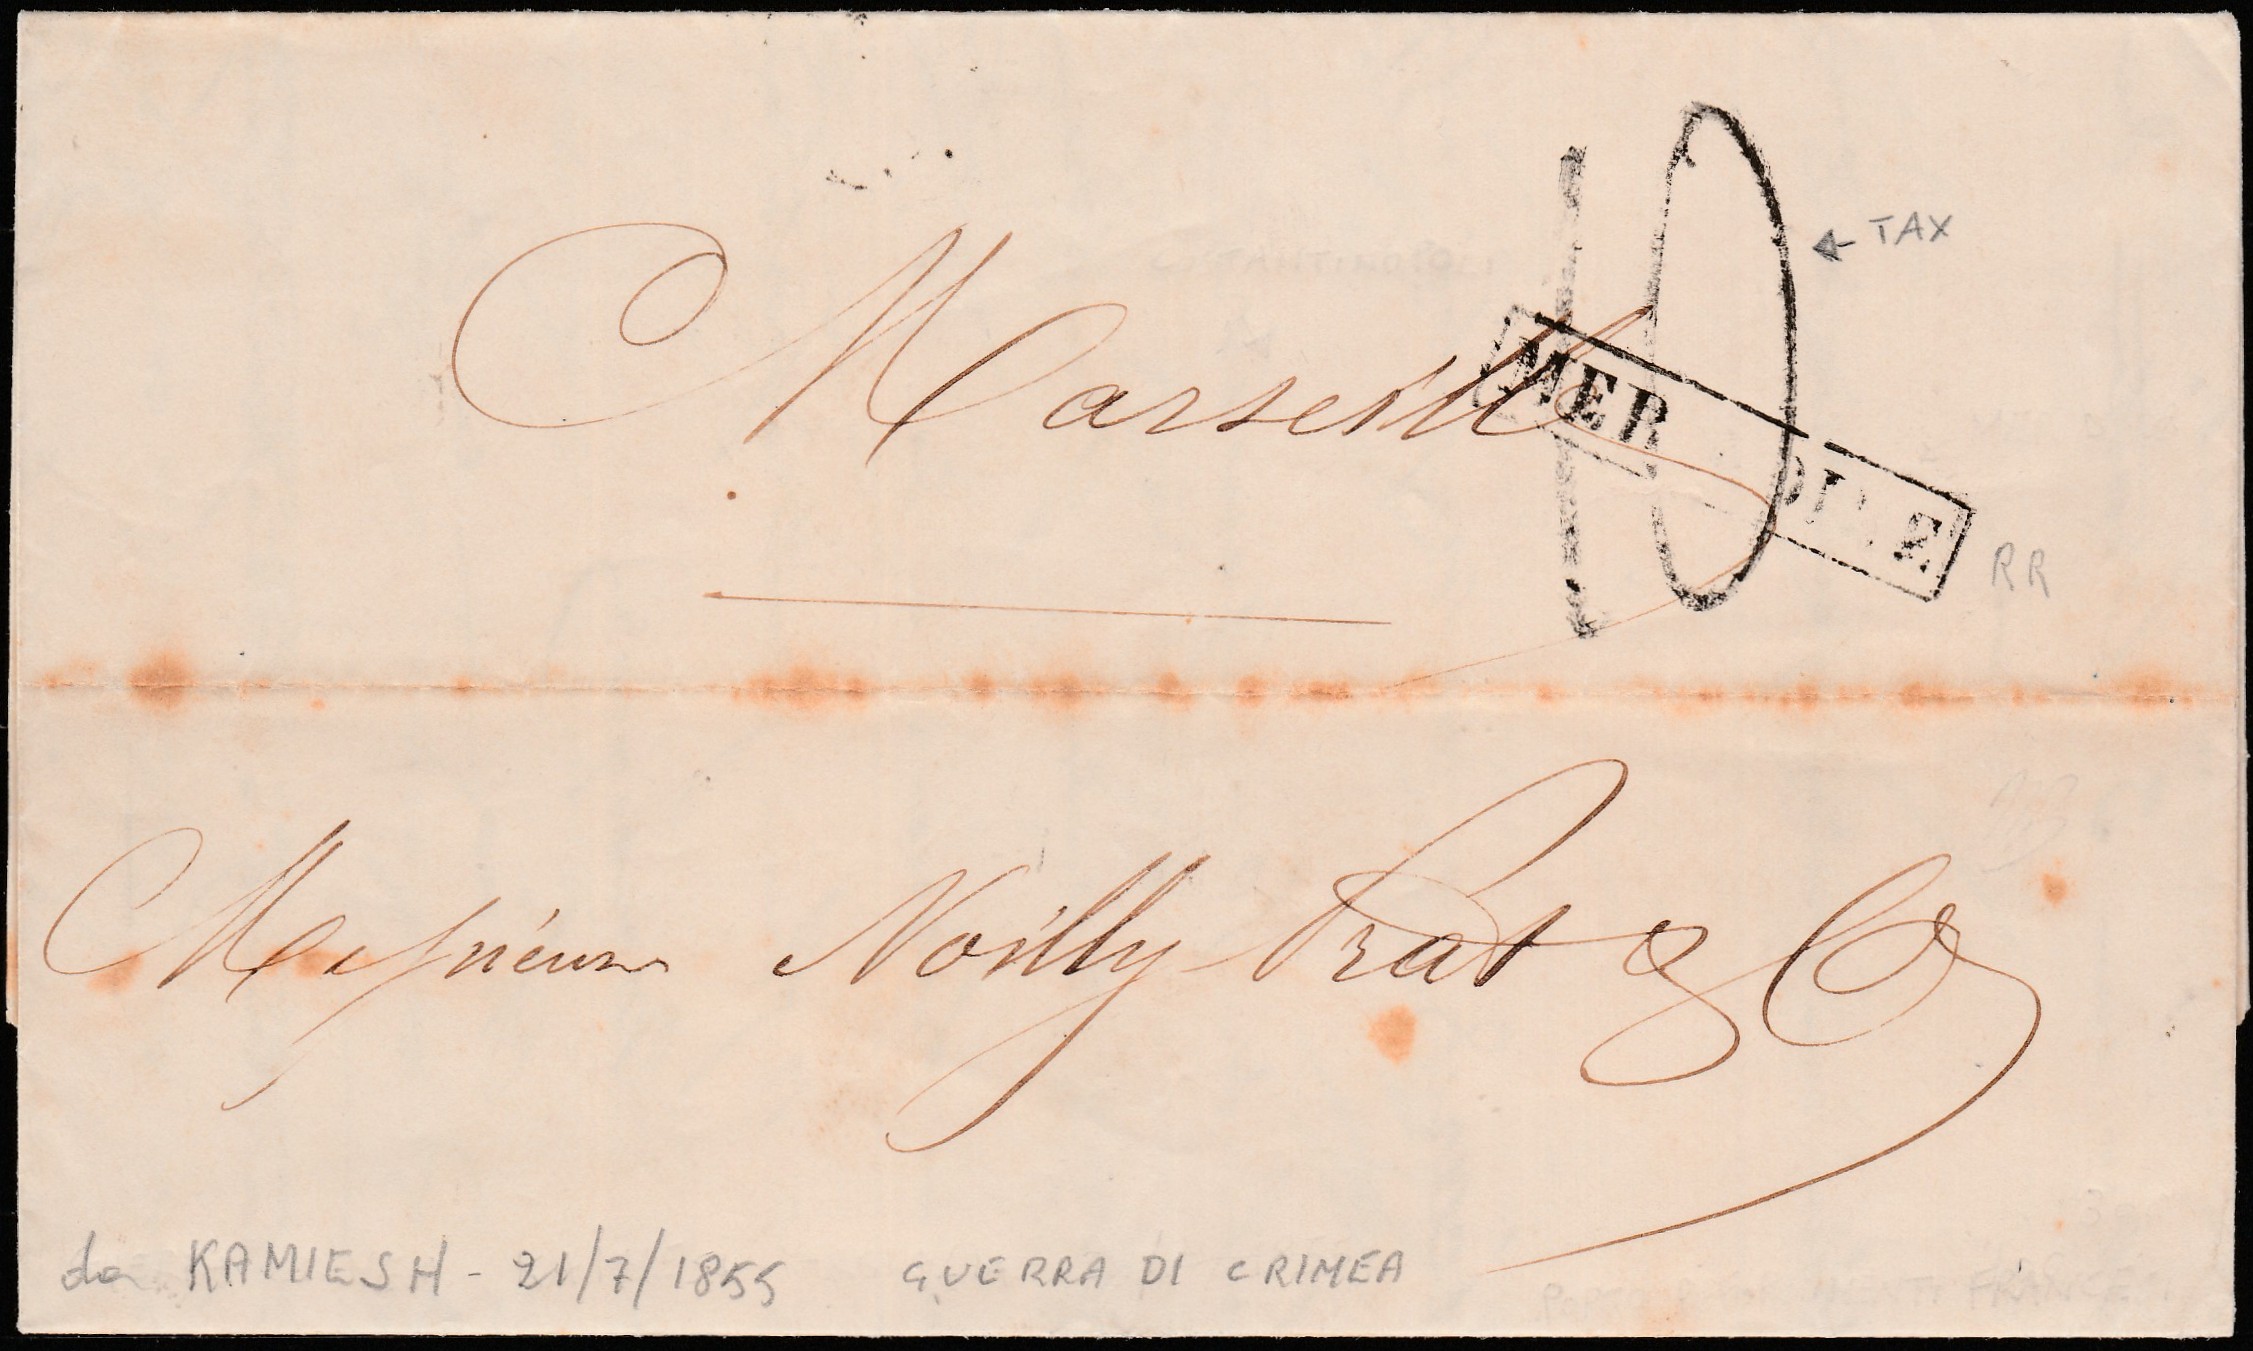 10
← TAX
Marseille
MER
RR
Messieurs Noilly Prat & Co
da KAMIESH - 21/7/1855 GUERRA DI CRIMEA